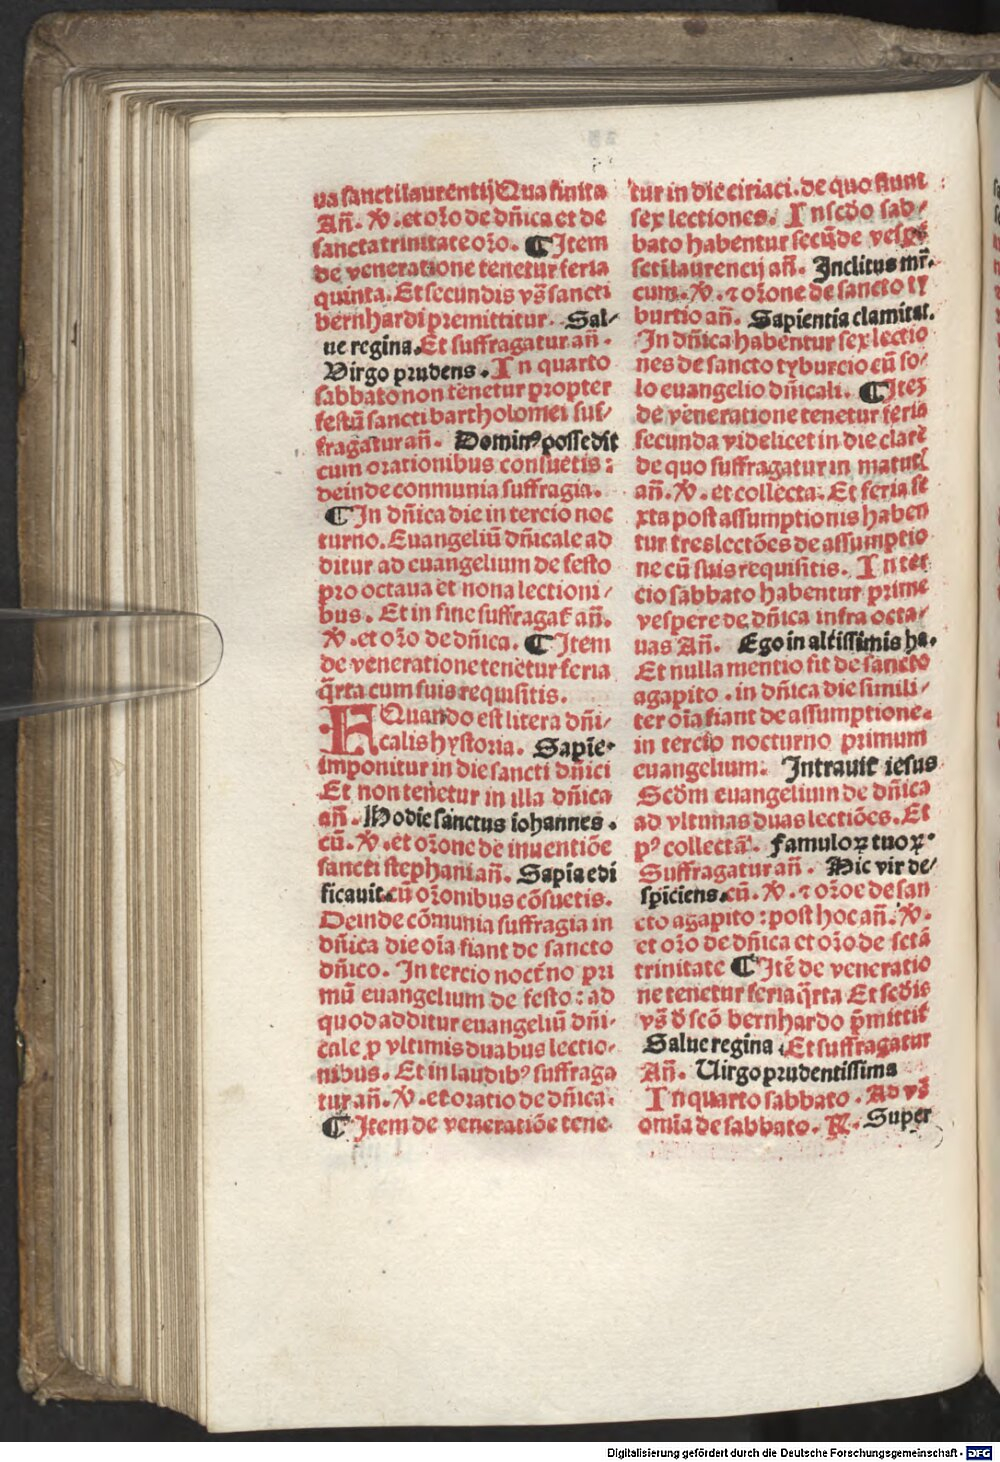 ua sancti laurentij Qua finita
Añ. ℣. et or̃o de dñica et de
sancta trinitate or̃o. ¶ Item
de veneratione tenetur feria
quinta. Et secundis vs̃ sancti
bernhardi premittitur. Sal⸗
ue regina. Et suffragatur añ.
Virgo prudens. In quarto
sabbato non tenetur propter
festũ sancti bartholomei suf⸗
fragatur añ. Dominꝰ possedit
cum orationibus consuetis:
deinde conmunia suffragia.
¶ In dñica die in tercio noc
turno. Euangeliũ dñicale ad
ditur ad euangelium de festo
pro octaua et nona lectioni⸗
bus. Et in fine suffragat̃ añ.
℣. et or̃o de dñica. ¶ Item
de veneratione tenetur feria
q̃rta cum suis requisitis.
F Quando est litera dñi⸗
calis hystoria. Sapiẽ⸗
imponitur in die sancti dñici
Et non tenetur in illa dñica
añ. Hodie sanctus iohannes.
cũ. ℣. et or̃one de inuentiõe
sancti stephani añ. Sapĩa edi
ficauit. cũ or̃onibus cõsuetis.
Deinde cõmunia suffragia in
dñica die oĩa fiant de sancto
dñico. In tercio noct̃no pri
mũ euangelium de festo: ad
quod additur euangeliũ dñi⸗
cale ꝓ vltimis duabus lectio⸗
nibus. Et in laudibꝰ suffraga
tur añ. ℣. et oratio de dñica.
¶ Item de veneratiõe tene
tur in die ciriaci. de quo fiunt
sex lectiones. In scd̃o sab⸗
bato habentur secũde vesp̃e
sctĩ laurencij añ. Inclitus mr̃.
cum. ℣. ⁊ or̃one de sancto ty
burtio añ. Sapientia clamitat.
In dñica habentur sex lectio
nes de sancto tyburcio cũ so⸗
lo euangelio dñicali. ¶ Iteꝫ
de veneratione tenetur feria
secunda videlicet in die clarẽ
de quo suffragatur in matut̃
añ. ℣. et collecta. Et feria se
xta post assumptionis haben
tur tres lectões de assumptio
ne cũ suis requisitis. In ter
cio sabbato habentur prime
vespere de dñica infra octa⸗
uas Añ. Ego in altissimis ha.
Et nulla mentio fit de sancto
agapito. in dñica die simili⸗
ter oĩa fiant de assumptione.
in tercio nocturno primum
euangelium. Intrauit iesus
Scd̃m euangelium de dñica
ad vltimas duas lectiões. Et
pꝰ collectã. Famuloꝝ tuoꝝ.
Suffragatur añ. Hic vir de⸗
spiciens. cũ. ℣. ⁊ or̃oe de san
cto agapito: post hoc añ. ℣.
et or̃o de dñica et or̃o de sctã
trinitate ¶ Itẽ de veneratio
ne tenetur feria q̃rta Et scd̃is
vs̃ d̃ scõ bernhardo p̃mittit̃
Salue regina. Et suffragatur
Añ. Uirgo prudentissima
In quarto sabbato. Ad vs̃
omĩa de sabbato. ℟. Super
Digitalisierung gefördert durch die Deutsche Forschungsgemeinschaft - DFG